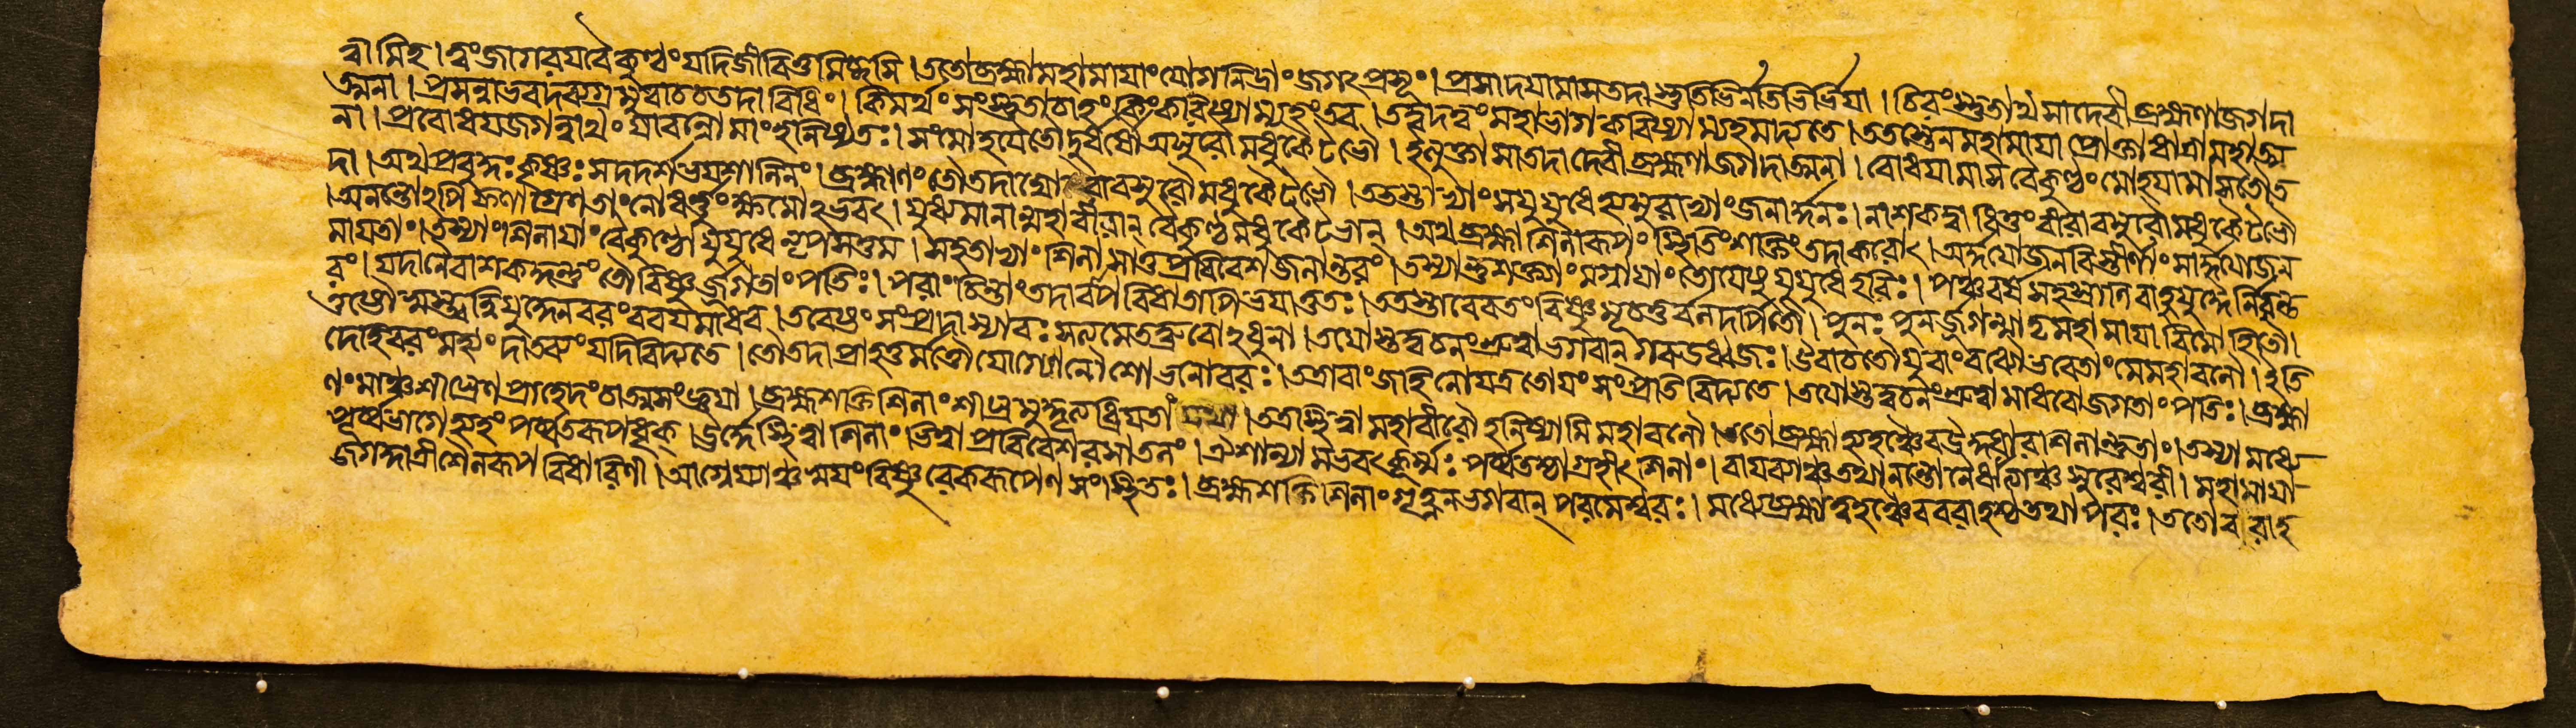 ষামিহ। ত্বং জাগরয বৈকুণ্ঠং যদি জীবিতুমিচ্ছসি। ততো ব্রহ্মা মহামাযাং যোগনিদ্রাং জগৎপ্রসূং। প্রসাদযামাস তদা স্তুতিভির্নতিভির্ভিযা। চিরং স্তুতাথ সা দেবী ব্রহ্মণা জগদা
ত্মনা। প্রসন্নাভবদব্যগ্রমুবাচ চ তদা বিধিং। কিমর্থং সংস্তুতা চাহং কিং করিষ্যাম্যহং তব। তদ্বদ ত্বং মহাভাগ করিষ্যাম্যহমদ্য তে। ততস্তেন মহামাযা প্রোক্তা ধাত্রা মহাত্ম
না। প্রবোধয জগন্নাথং যাবন্নো মাং হনিষ্যতঃ। সংমোহযৈতৌ দুর্ধর্ষৌ অসুরৌ মধুকৈটভৌ। ইত্যুক্তা সা তদা দেবী ব্রহ্মণা জগদাত্মনা। বোধযামাস বৈকুণ্ঠং মোহযামাস তৌ ত
দা। অথ প্রবুদ্ধঃ কৃষ্ণঃ স দদর্শ ভযশালিনং। ব্রহ্মাণং তৌ তদা ঘোরাবসুরৌ মধুকৈটভৌ। ততস্তাভ্যাং স যুযুধে হ্যসুরাভ্যাং জনার্দ্দনঃ। নাশকদ্বাধিতুং বীরাবসুরৌ মধুকৈটভৌ
।অনন্তোঽপি ফণাগ্রেণ তাং নো ধর্ত্তুং ক্ষমোঽভবৎ। যুধ্যমানান্মহাবীরান্ বৈকুণ্ঠমধুকৈটভান্। অথ ব্রহ্মা শিলারূপং স্থিতিংশক্তিং তদাকরোৎ। অর্দ্ধযোজনবিস্তীর্ণাং সার্দ্ধযোজন
মাযতাং। তস্যাং শিলাযাং বৈকুণ্ঠো যুযুধে নৃপসত্তম। সহ তাভ্যাং শিলা সা তু প্রবিবেশ জলান্তরং। তস্যান্তু শক্ত্যাং মগ্নাযাং তোযেষু যুযুধে হরিঃ। পঞ্চবর্ষসহস্রাণি বাহুযুদ্ধৈর্নিরন্ত
রং। যদা নৈবাশকদ্ধন্তুং তৌ বিষ্ণুর্জ্জগতাং পতিঃ। পরাং চিন্তাং তদাবাপ বিধাতাপি ভযাত্ততঃ। ততস্তাবেব তং বিষ্ণুমূচতুর্বলদর্পিতৌ। পুনঃ পুনর্জগন্মাতৃমহামাযাবিমোহিতৌ।
তুষ্টৌ স্বস্ত্বন্নিযুদ্ধেন বরং বরয মাধব। তবেষ্টং সংপ্রদাস্যাবঃ সত্যমেতদ্ব্রুবোঽধুনা। তযোস্তদ্বচনং শ্রুত্বা ভগবান্ গরুডধ্বজঃ। উবাচ তৌ যুবাং বধ্যৌ ভবেতাং মে মহাবলৌ। ইতি
দেহি বরং মহ্যং দাতব্যং যদি বিদ্যতে। তৌ তদা প্রাহতুর্মত্তৌ যোগ্যো নৌ শোভনো বরঃ। তত্রাবাং জহি নো যত্র তোযং সংপ্রতি বিদ্যতে। তযোস্তদ্বচনং শ্রুত্বা মাধবো জগতাং পতিঃ। ব্রহ্মা
ণং মাঞ্চ শীঘ্রেণ প্রাহেদং চাত্মসংজ্ঞযা। ব্রহ্মশক্তিশিলাং শীঘ্রমুদ্ধৃত্য ধ্রিযতাং যথা। তত্র স্থিত্বা মহাবীরৌ হনিষ্যামি মহাবলৌ। ততো ব্রহ্মা হ্যহঞ্চৈব উদ্দধার শিলান্তু তাং। তস্যা মধ্যে
পূর্ব্বভাগে হ্যহং পর্ব্বতরূপধৃক্। ঊর্দ্ধে স্থিত্বা শিলাং ভিত্বা প্রবিবেশ রসাতলং। ঐশান্যামভবৎ কূর্ম্মঃ পর্ব্বতস্তা গ্রহীৎ শিলাং। বাযব্যাঞ্চ তথানন্তো নৈরৃত্যাঞ্চ সুরেশ্বরী। মহামাযা
জগদ্ধাত্রী শৈলরূপবিধারিণী। আগ্নেয্যাঞ্চ স্বযং বিষ্ণুরেকরূপেণ সংস্থিতঃ। ব্রহ্মশক্তিশিলাং গৃহ্ণন্ ভগবান্ পরমেশ্বরঃ। মধ্যে ব্রহ্মা ত্বহঞ্চৈব বরাহশ্চ তথাপরঃ। ততো বরাহ